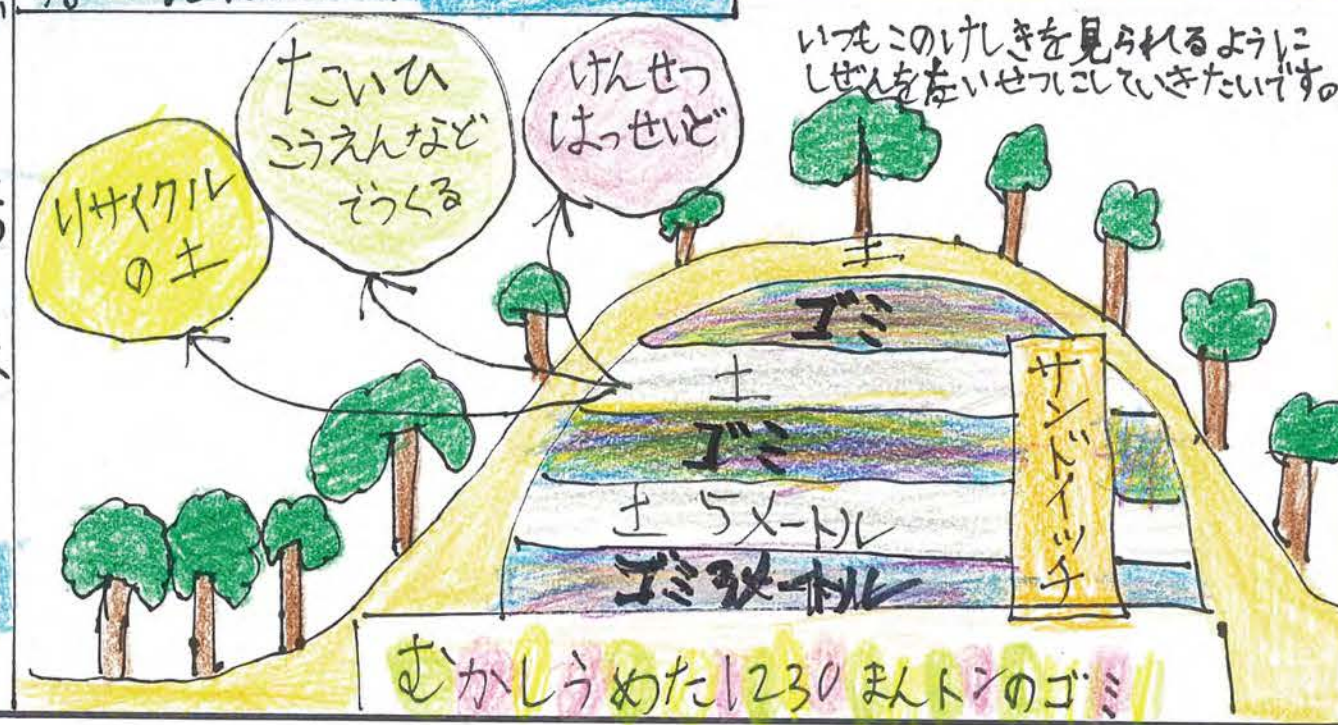 いつもこのけしきを見られるように
しぜんをたいせつにしていきたいです。
けんせつ
はっせいど
たいひ
こうえんなど
でつくる
リサイクル
の土
土
ゴミ
土
ゴミ
土 5メートル
ゴミ3メートル
サンドイッチ
むかしうめた1230まんトンのゴミ